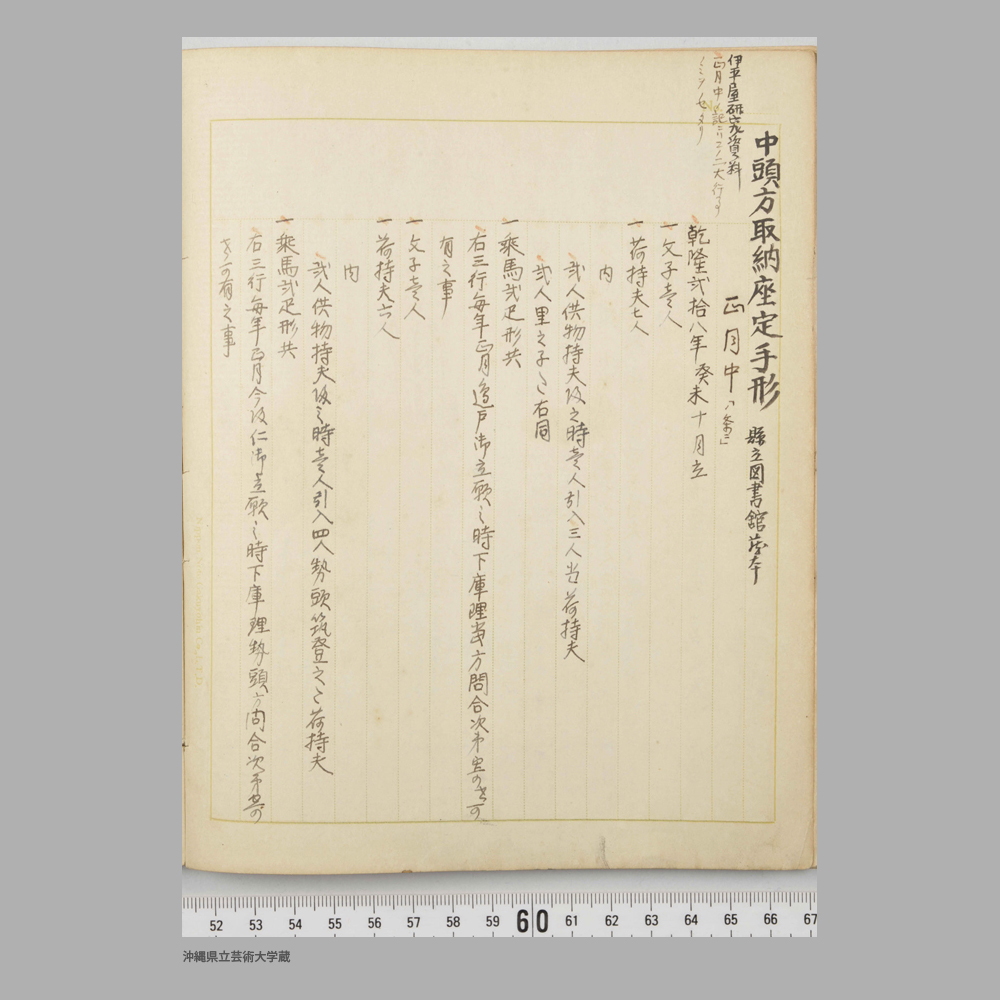 中頭方取納座定手形 縣立図書館蔵本
伊平屋研究資料
正月中
正月中「条ミ」
乾隆弐拾八年癸未十月立
一文子壱人
一荷持夫七人
内
弐人供物持夫成之時壱人引入三人当荷持夫
弐人里之子之右同
一乗馬弐疋形共
右三行毎年正月邊戸御立願之時下庫理当方問合次第出の
有之事
一文子壱人
一荷持夫六人
内
弐人供物持夫成之時壱人引入四人勢頭筑登之之荷持夫
一乗馬弐疋形共
右三行毎年正月今成仁御立願之時下庫理勢頭方問合次第出の
可有之事
52 53 54 55 56 57 58 59 60 61 62 63 64 65 66 67
沖縄県立芸術大学蔵